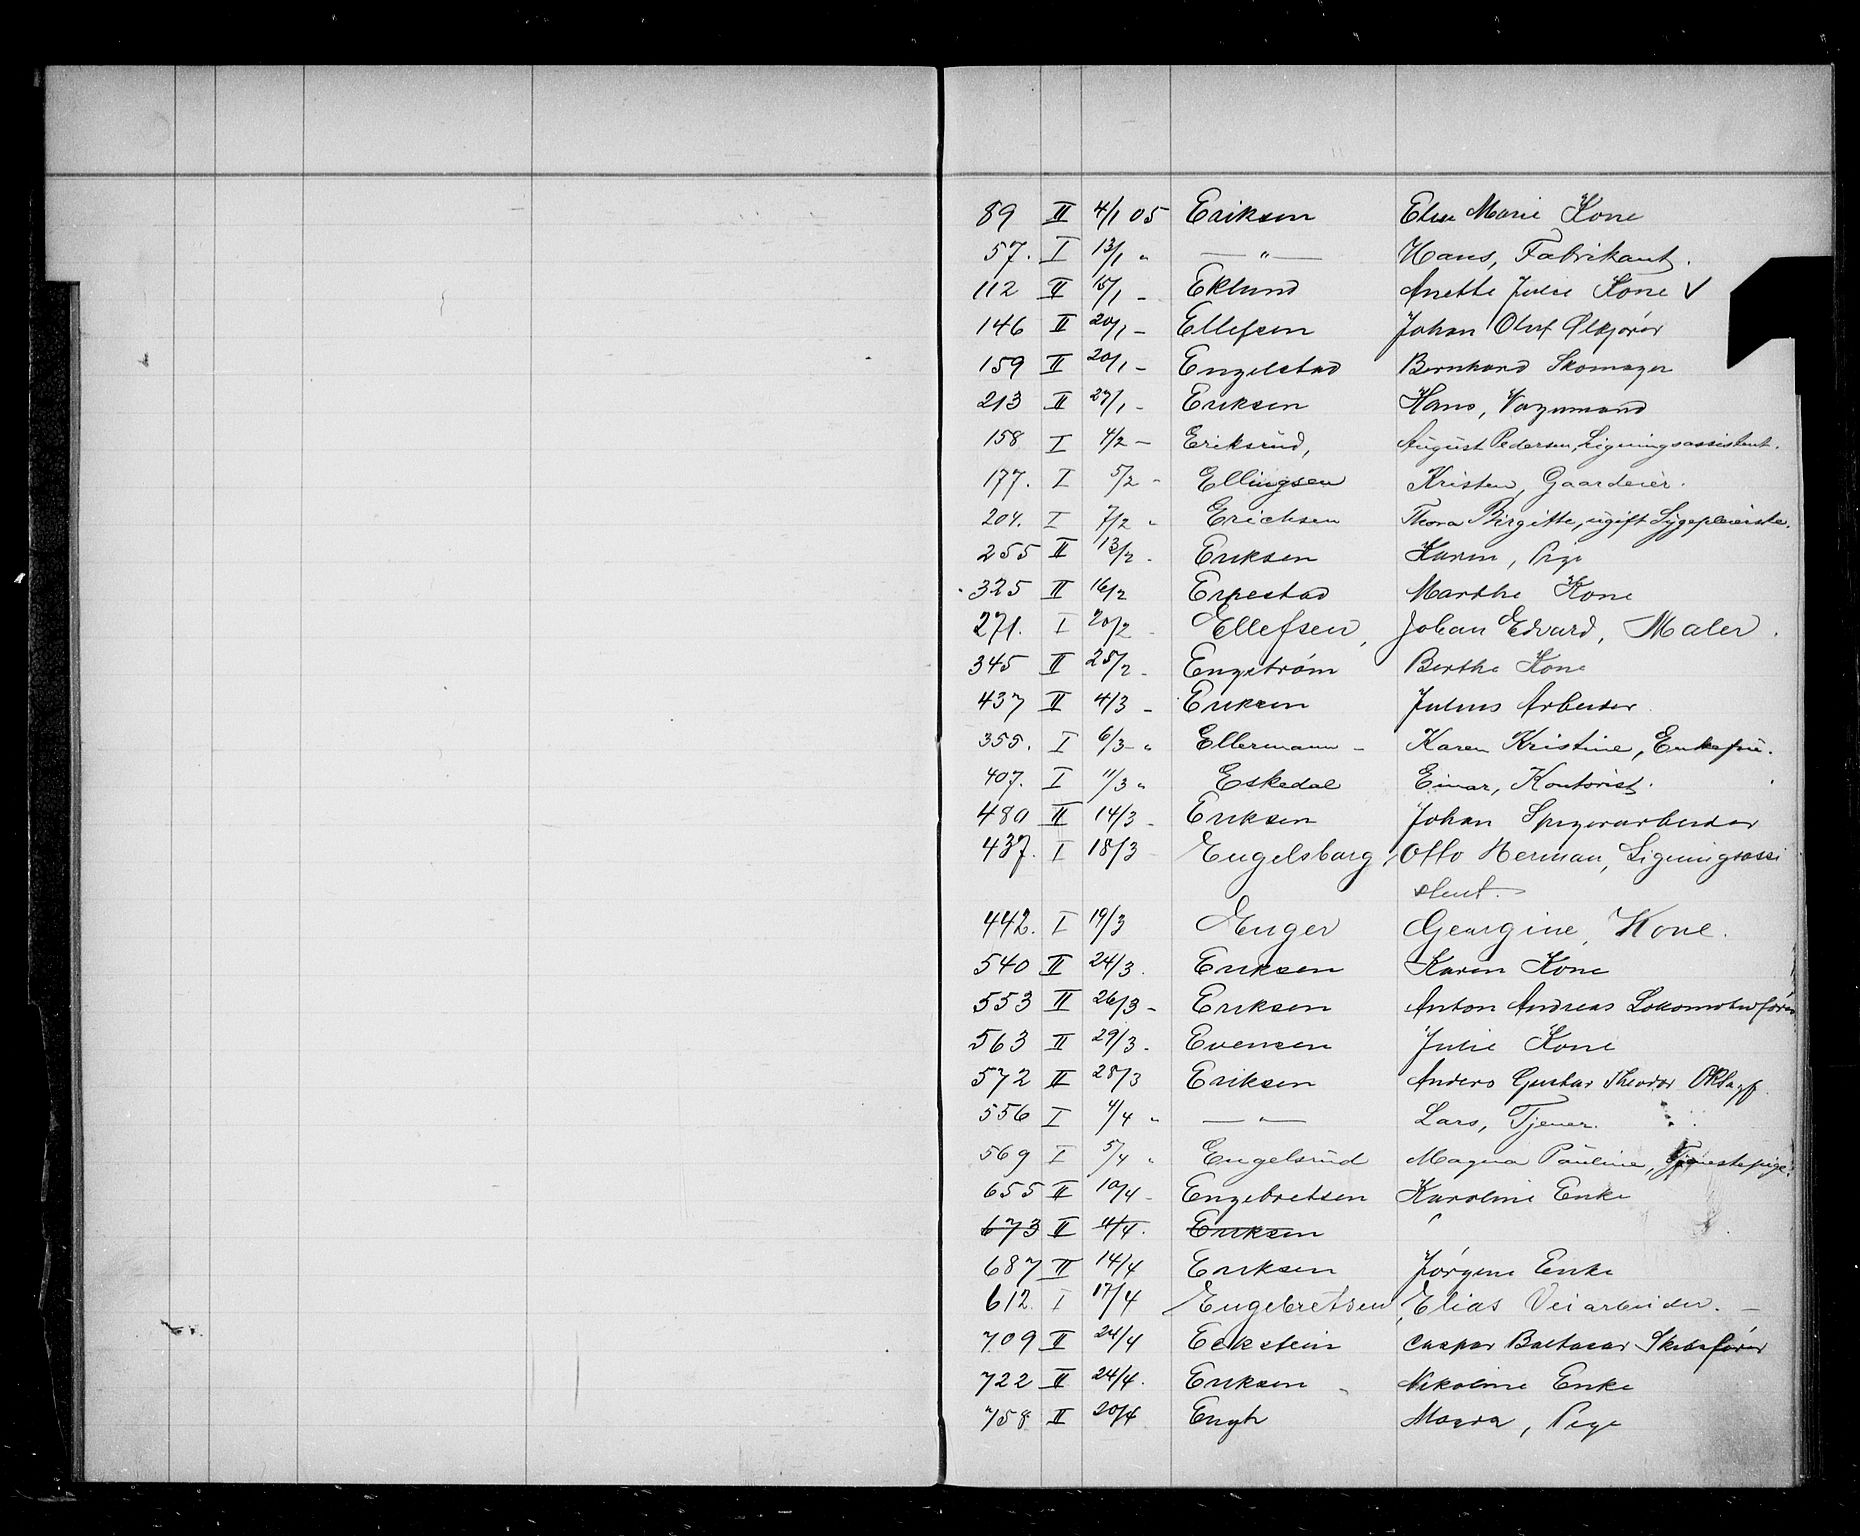 89 II 4/1 05 Eriksen Elise Marie Kone
57. I 13/1 " —"— Hans, Fabrikant.
112 II 15/1 - Eklund Anette Julie Kone V
146 II 20/1 - Ellefsen Johan Oluf Ølkjører
159 II 20/1 - Engelstad Bernhard Skomager
213 II 27/1 - Eriksen Hans, Vognmand
158 I 4/2 - Eriksrud, August Pedersen, Ligningsassistent.
177. I 5/2 - Ellingsen Kristen, Gaardeier.
204. I 7/2 " Erichsen Thora Birgitte, ugift Sygepleierske.
255 II 13/2 - Eriksen Karen, Pige
325 II 16/2 Erpestad Marthe Kone
271. I 20/2 - Ellefsen, Johan Edvard, Maler.
345 II 25/2 - Engstrøm Berthe Kone
437 II 4/3 - Eriksen Julius Arbeider
355. I 6/3 - " Ellermann - Karen Kristine, Enkefru.
407. I 11/3 " Eskedal Einar, Kontorist.
480 II 14/3 - Eriksen Johan Spigerarbeider
437. I 18/3 - Engelsborg, Otto Herman, Ligningsassi
stent.
442. I 19/3 Enger Georgine, Kone.
540 II 24/3. Eriksen Karen Kone
553 II 26/3 - Eriksen Anton Andreas Lokomotivfører
563 II 29/3. Evensen Julie Kone
572 II 28/3 Eriksen Anders Gustav Theodor
556 I 4/4 " —"— Lars, Tjener.
569 I 5/4 " Engelsrud Magna Pauline, Tjenestepige.
655 II 10/4 - Engebretsen Karoline Enke
673 II 4/4. Eriksen
687 II 14/4 Eriksen Jørgine Enke
612. I 17/4 Engebretsen, Elias Veiarbeider. -
709 II 24/4 Eckstein Caspar Baltasar Skibsfører
722 II 24/4. Eriksen - Nikoline Enke
758 II 20/4 Engh Magda, Pige